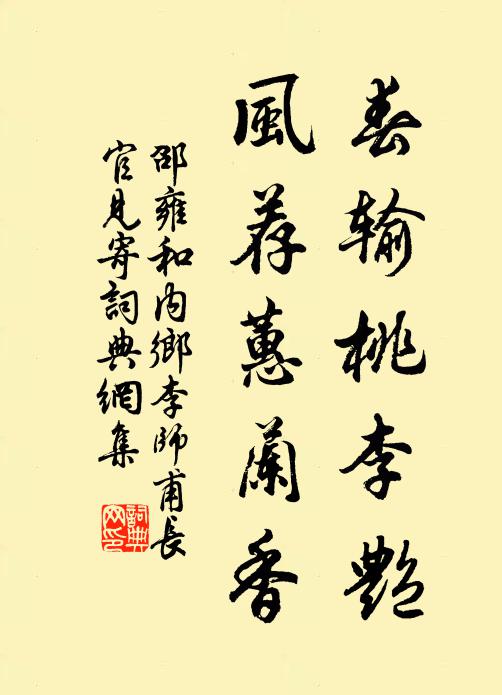 春輸桃李艷
風荐蕙蘭香
邵雍和內鄉李師甫長
官見寄詞典網集
詞典
网印